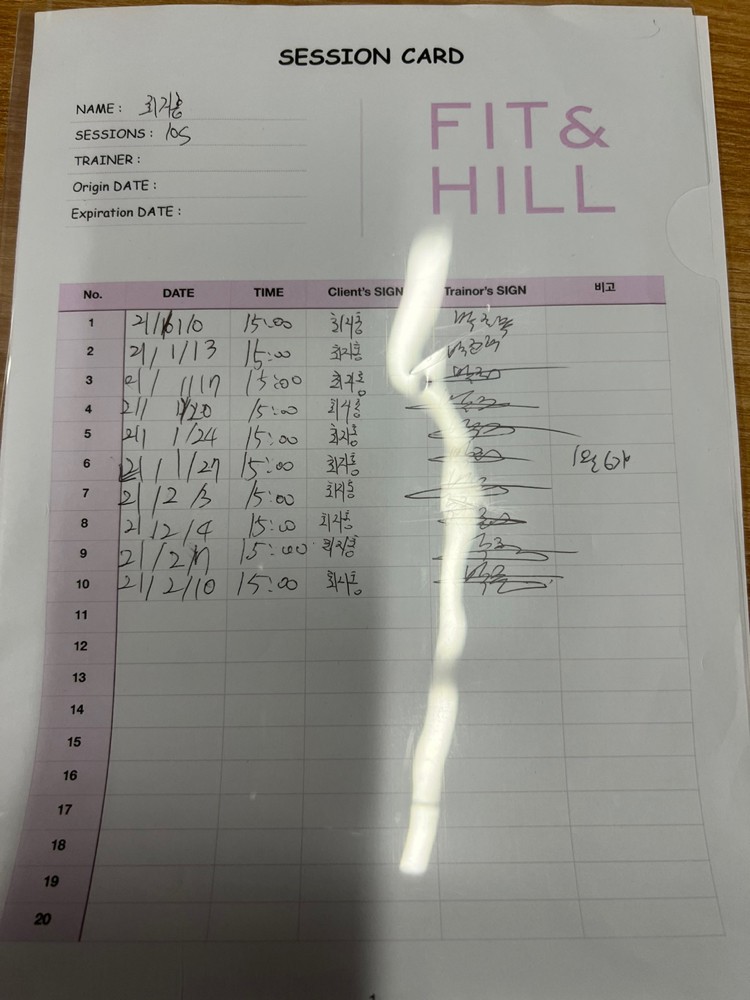 SESSION CARD
NAME : 최지홍
SESSIONS : 10S
TRAINER :
Origin DATE :
Expiration DATE :
FIT&
HILL
No. DATE TIME Client's SIGN Trainor's SIGN 비고
1 21/ 1/10 15:00 최지홍
2 21/ 1/13 15:00 최지홍
3 21/ 1/17 15:00 최지홍
4 21/ 1/20 15:00 최지홍
5 21/ 1/24 15:00 최지홍
6 21/ 1/27 15:00 최지홍 1월 6개
7 21/2/3 15:00 최지홍
8 21/2/4 15:00 최지홍
9 21/2/7 15:00 최지홍
10 21/2/10 15:00 최지홍
11
12
13
14
15
16
17
18
19
20